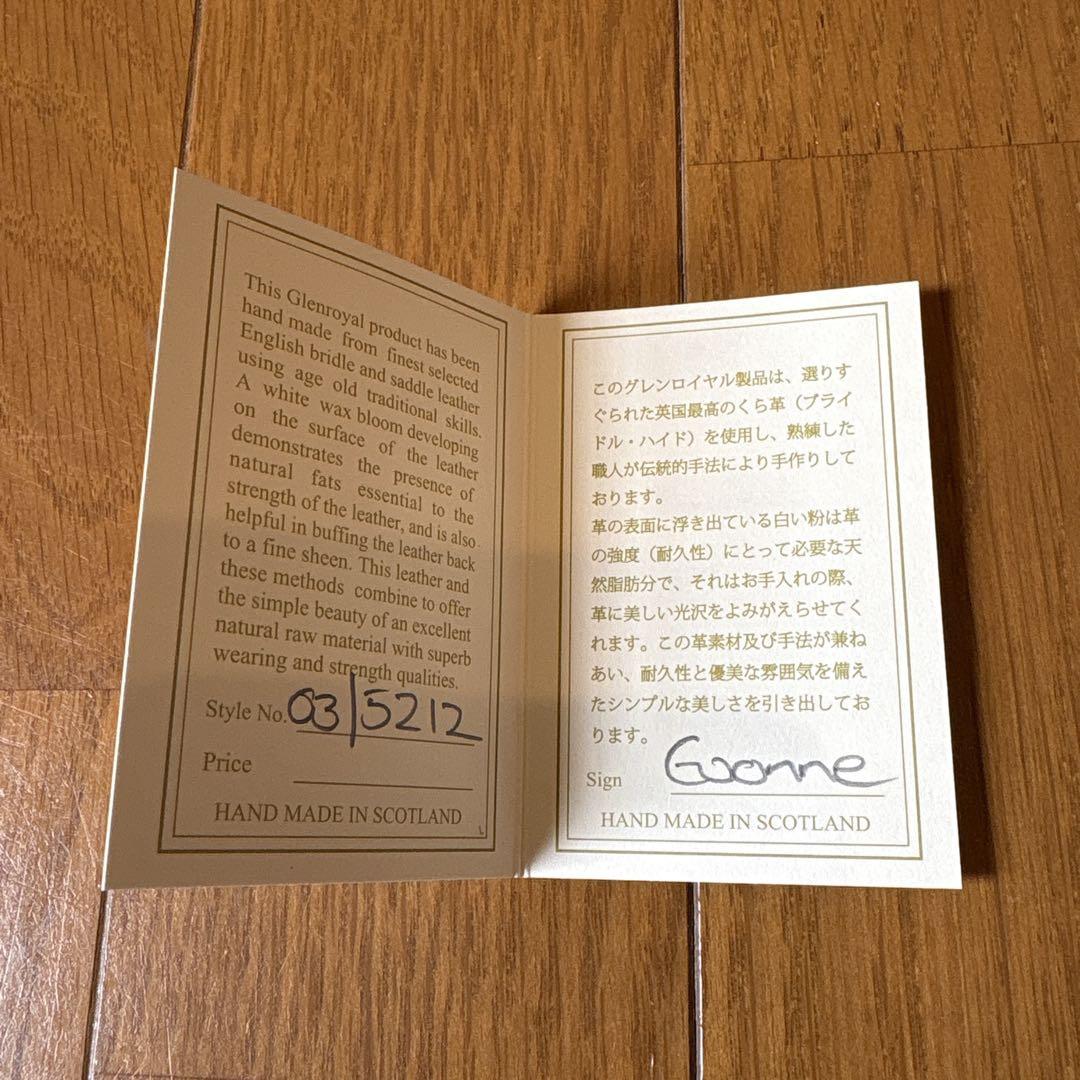 This Glenroyal product has been
hand made from finest selected
English bridle and saddle leather
using age old traditional skills.
A white wax bloom developing
on the surface of the leather
demonstrates the presence of
natural fats essential to the
strength of the leather, and is also
helpful in buffing the leather back
to a fine sheen. This leather and
these methods combine to offer
the simple beauty of an excellent
natural raw material with superb
wearing and strength qualities.
Style No. 03/5212
Price
HAND MADE IN SCOTLAND
このグレンロイヤル製品は、選りす
ぐられた英国最高のくら革（ブライ
ドル・ハイド）を使用し、熟練した
職人が伝統的手法により手作りして
おります。
革の表面に浮き出ている白い粉は革
の強度（耐久性）にとって必要な天
然脂肪分で、それはお手入れの際、
革に美しい光沢をよみがえらせてく
れます。この革素材及び手法が兼ね
あい、耐久性と優美な雰囲気を備え
たシンプルな美しさを引き出してお
ります。
Sign
HAND MADE IN SCOTLAND